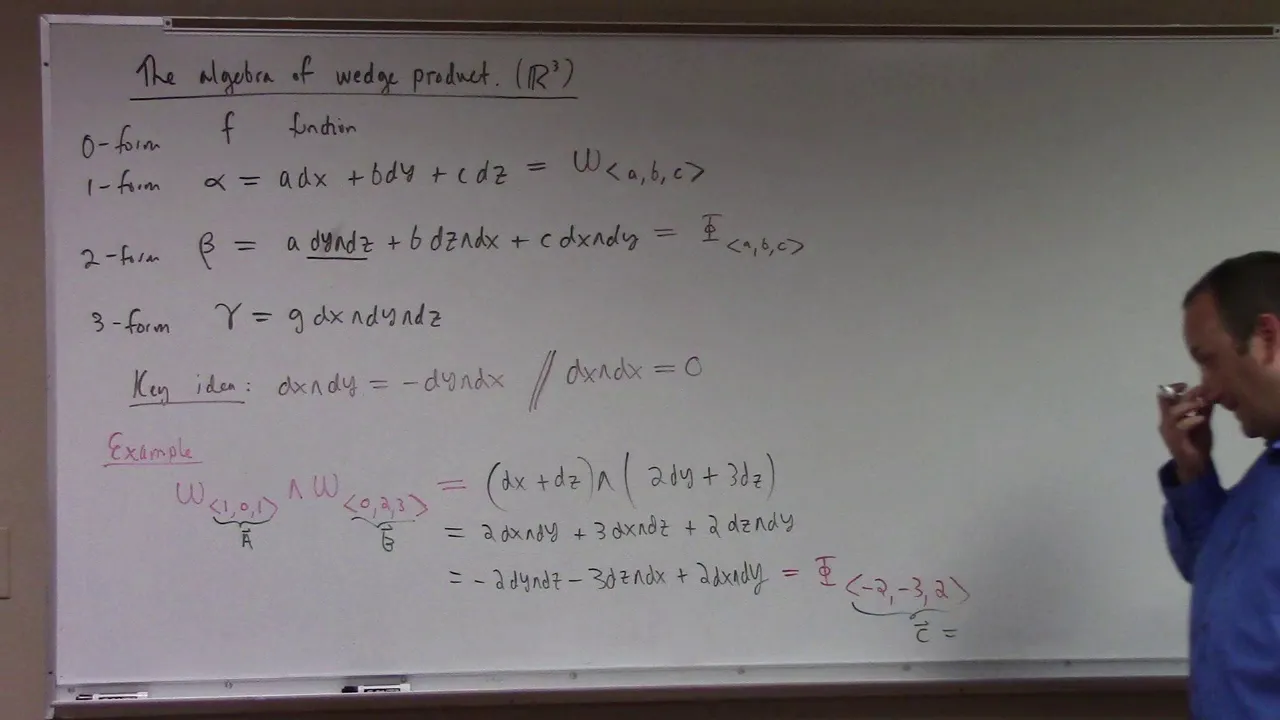 The algebra of wedge product. (ℝ³)
0-form f function
1-form α = a dx + b dy + c dz = ω<a,b,c>
2-form β = a dy∧dz + b dz∧dx + c dx∧dy = Φ<a,b,c>
3-form γ = g dx∧dy∧dz
Key idea: dx∧dy = -dy∧dx // dx∧dx = 0
Example
ω<1,0,1> ∧ ω<0,2,3> = (dx + dz)∧(2dy + 3dz)
A⃗ B⃗ = 2dx∧dy + 3dx∧dz + 2dz∧dy
= -2dy∧dz - 3dz∧dx + 2dx∧dy = Φ<-2,-3,2>
C⃗ =